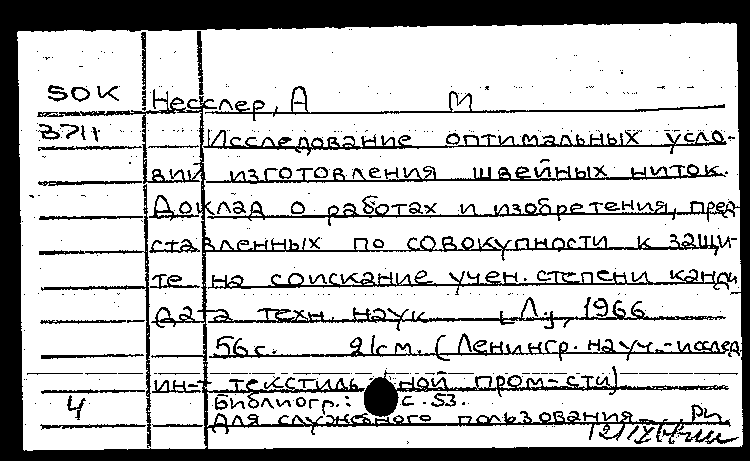 50К Несслер, А М
3711 Исследование оптимальных усло-
вий изготовления швейных ниток.
Доклад о работах и изобретения, пред-
ставленных по совокупности к защи-
те на соискание учен. степени канди
дата техн. наук [Л], 1966
56 с. 21 см. (Ленингр. науч.-исслед
ин-т текстильной пром-сти)
4 Библиогр.: с. 53.
Для служебного пользования